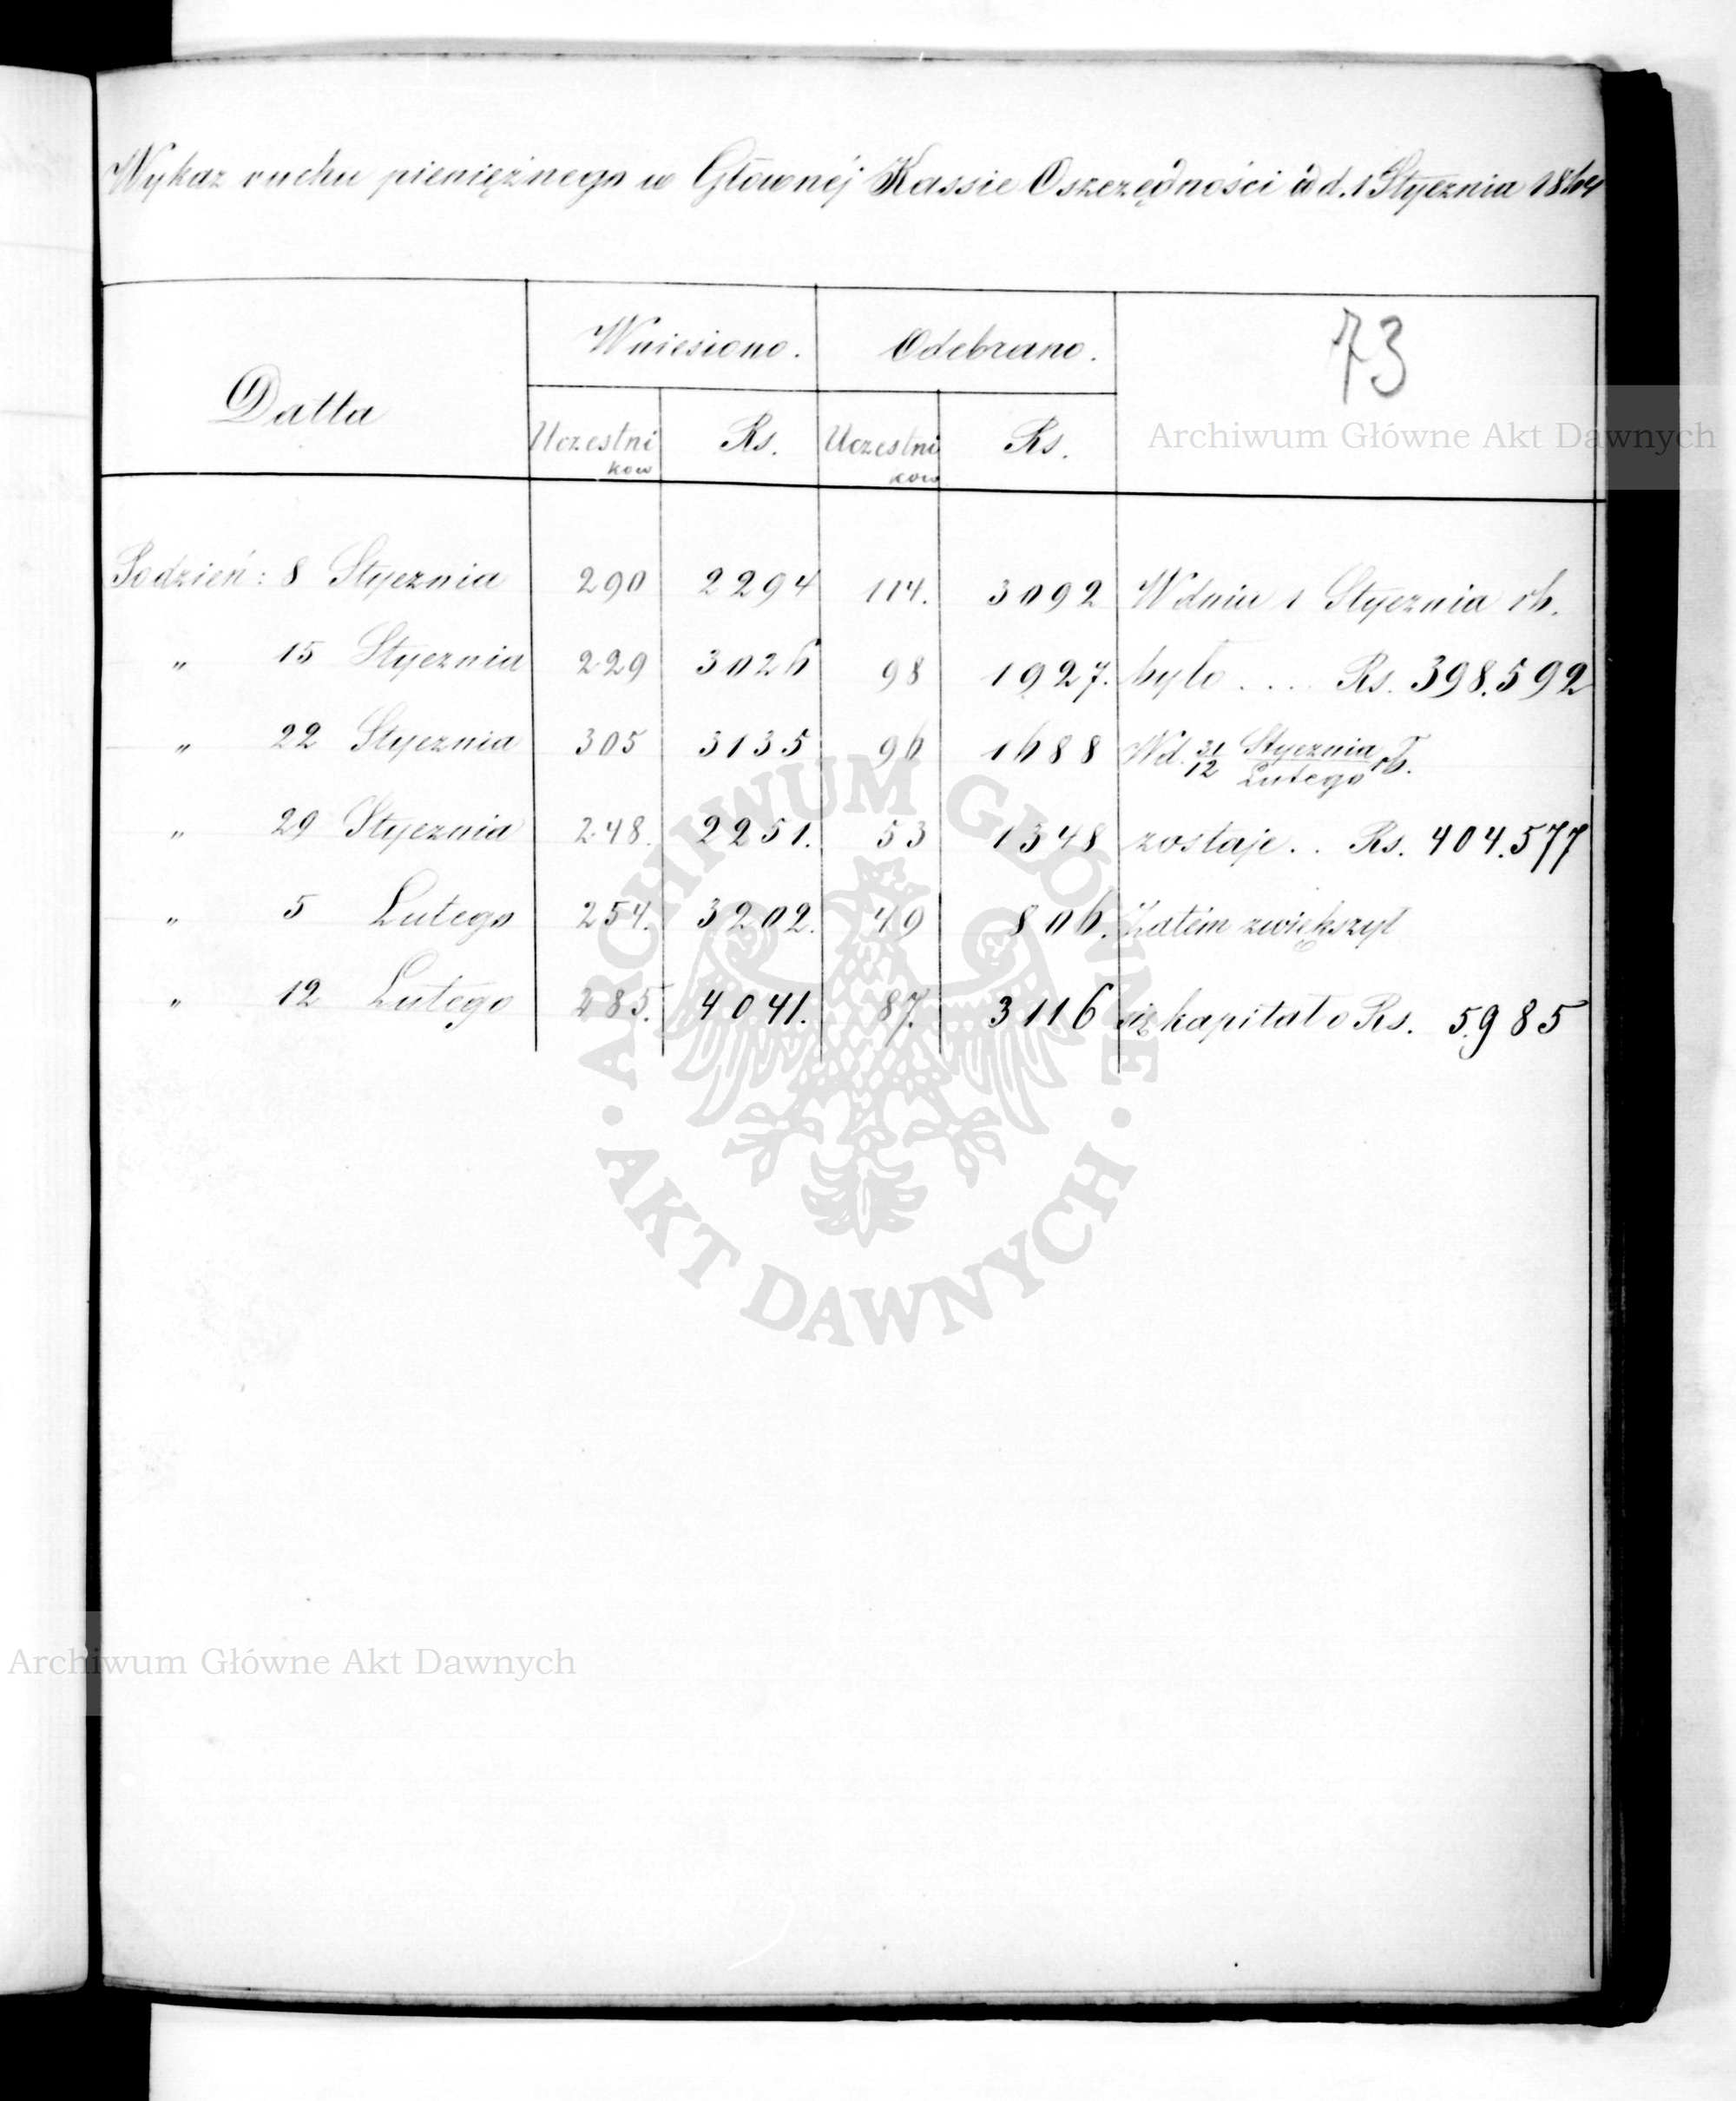 Wykaz ruchu pieniężnego w Głównéj Kassie Oszczędności od d. 1 Stycznia 1864
73
Datta Wniesiono. Odebrano.
Uczestni Rs. Uczestni Rs.
kow kow
Podzień: 8 Stycznia 290 2294 114. 3092 W dniu 1 Stycznia rb.
„ 15 Stycznia 229 3026 98 1927. było .... Rs. 398.592
„ 22 Stycznia 305 3135 96 1688 W d. 31/12 Stycznia/Lutego rb.
„ 29 Stycznia 248. 2251. 53 1348 zostaje .. Rs. 404.577
„ 5 Lutego 254. 3202. 49 806. Zatém zwiększył
„ 12 Lutego 285. 4041. 87. 3116 się kapitał o Rs. 5.985
Archiwum Główne Akt Dawnych
ARCHIWUM GŁÓWNE · AKT DAWNYCH ·
Archiwum Główne Akt Dawnych